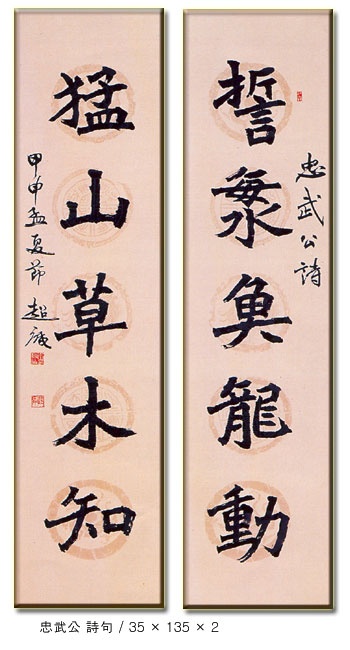 忠武公詩
誓海魚龍動
猛山草木知
甲申孟夏節 超
忠武公 詩句 / 35 × 135 × 2